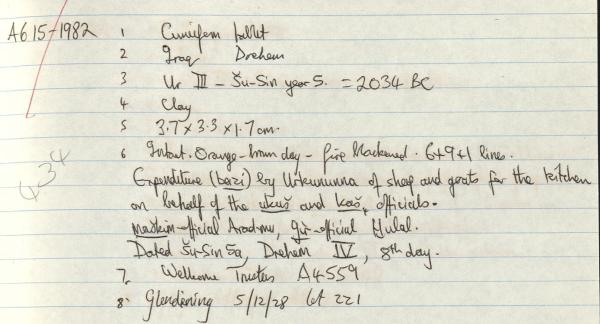 A615-1982 1 Cuneiform tablet
2 Iraq Drehem
3 Ur III - Šu-Sin year 5. = 2034 BC
4 Clay
5 3.7 x 3.3 x 1.7 cm.
6 Intact. Orange-brown clay - fire blackened. 6+9+1 lines.
Expenditure (bazi) by Urkununna of sheep and goats for the kitchen
on behalf of the ukuš and kaš₄ officials.
maškim-official Aradmu, gir-official Hulal.
Dated Šu-Sin 5a, Drehem IV, 8th day.
7. Wellcome Trustees A4559
8. Glendining 5/12/28 lot 221
434